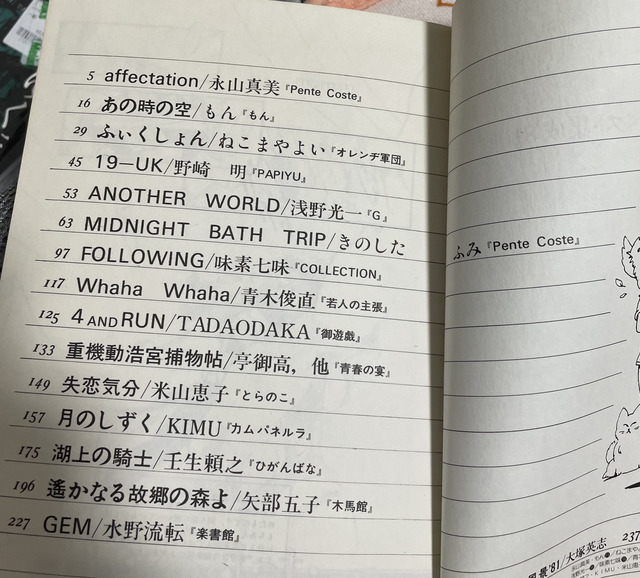 5 affectation/永山真美『Pente Coste』
16 あの時の空/もん『もん』
29 ふぃくしょん/ねこまやよい『オレンヂ軍団』
45 19−UK/野崎　明『PAPIYU』
53 ANOTHER WORLD/浅野光一『G』
63 MIDNIGHT BATH TRIP/きのした
ふみ『Pente Coste』
97 FOLLOWING/味素七味『COLLECTION』
117 Whaha Whaha/青木俊直『若人の主張』
125 4 AND RUN/TADAODAKA『御遊戯』
133 重機動浩宮捕物帖/亭御高，他『青春の宴』
149 失恋気分/米山恵子『とらのこ』
157 月のしずく/KIMU『カムパネルラ』
175 湖上の騎士/壬生頼之『ひがんばな』
196 遙かなる故郷の森よ/矢部五子『木馬館』
227 GEM/水野流転『楽書館』
景'81/大塚英志 237